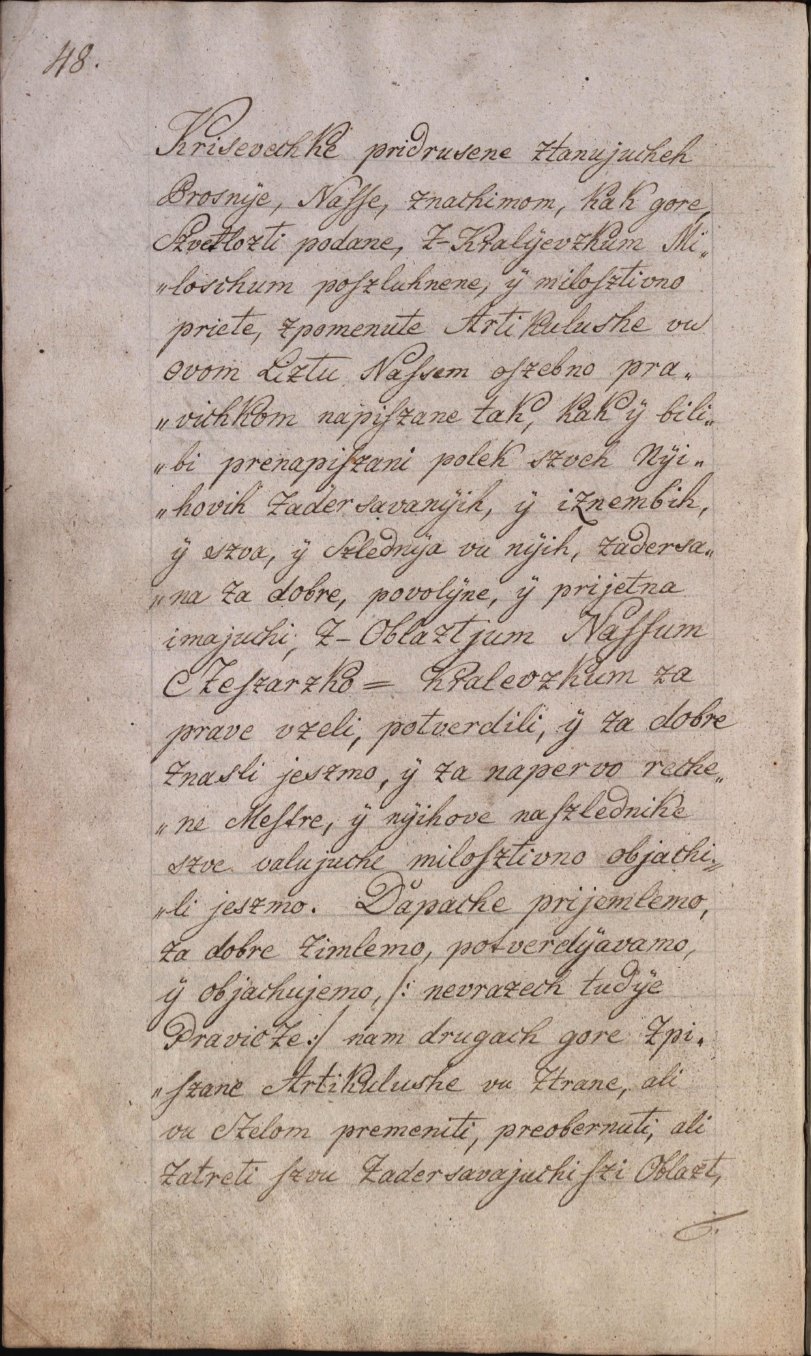 48.
Krisevechke pridrusene ztanujucheh
Prosnÿe, Nasse, znachimom, kak gore,
Szvetlozti podane, z-Kralÿevzkum Mi„
„loschum poszluhnene, ÿ milosztivno
priete, zpomenute Artikulushe vu
ovom Liztu Nassem oszebno pra„
„vichkom napiszane tak, kak ÿ bili„
„bi prenapiszani polek szveh Nÿi„
„hovih zadersavanÿih, ÿ iznembih,
ÿ szva, ÿ Szlednÿa vu nÿih, zadersa„
„na za dobre, povolÿne, ÿ prijetna
imajuchi, z-Oblaztjum Nassum
Czeszarzko = kralevzkum za
prave vzeli, potverdili, ÿ za dobre
znasli jeszmo, ÿ za napervo reche„
„ne Mestre, ÿ nÿihove naszlednike
szve valujuche milosztivno objachi„
„li jeszmo. Dapache prijemlemo,
za dobre zimlemo, potverdÿavamo,
ÿ objachujemo, /: nevrazech tudÿe
Pravicze :/ nam drugach gore zpi„
„szane Artikulushe vu ztrane, ali
vu czelom premeniti, preobernuti, ali
zatreti szvu zadersavajuchi szi Oblazt,